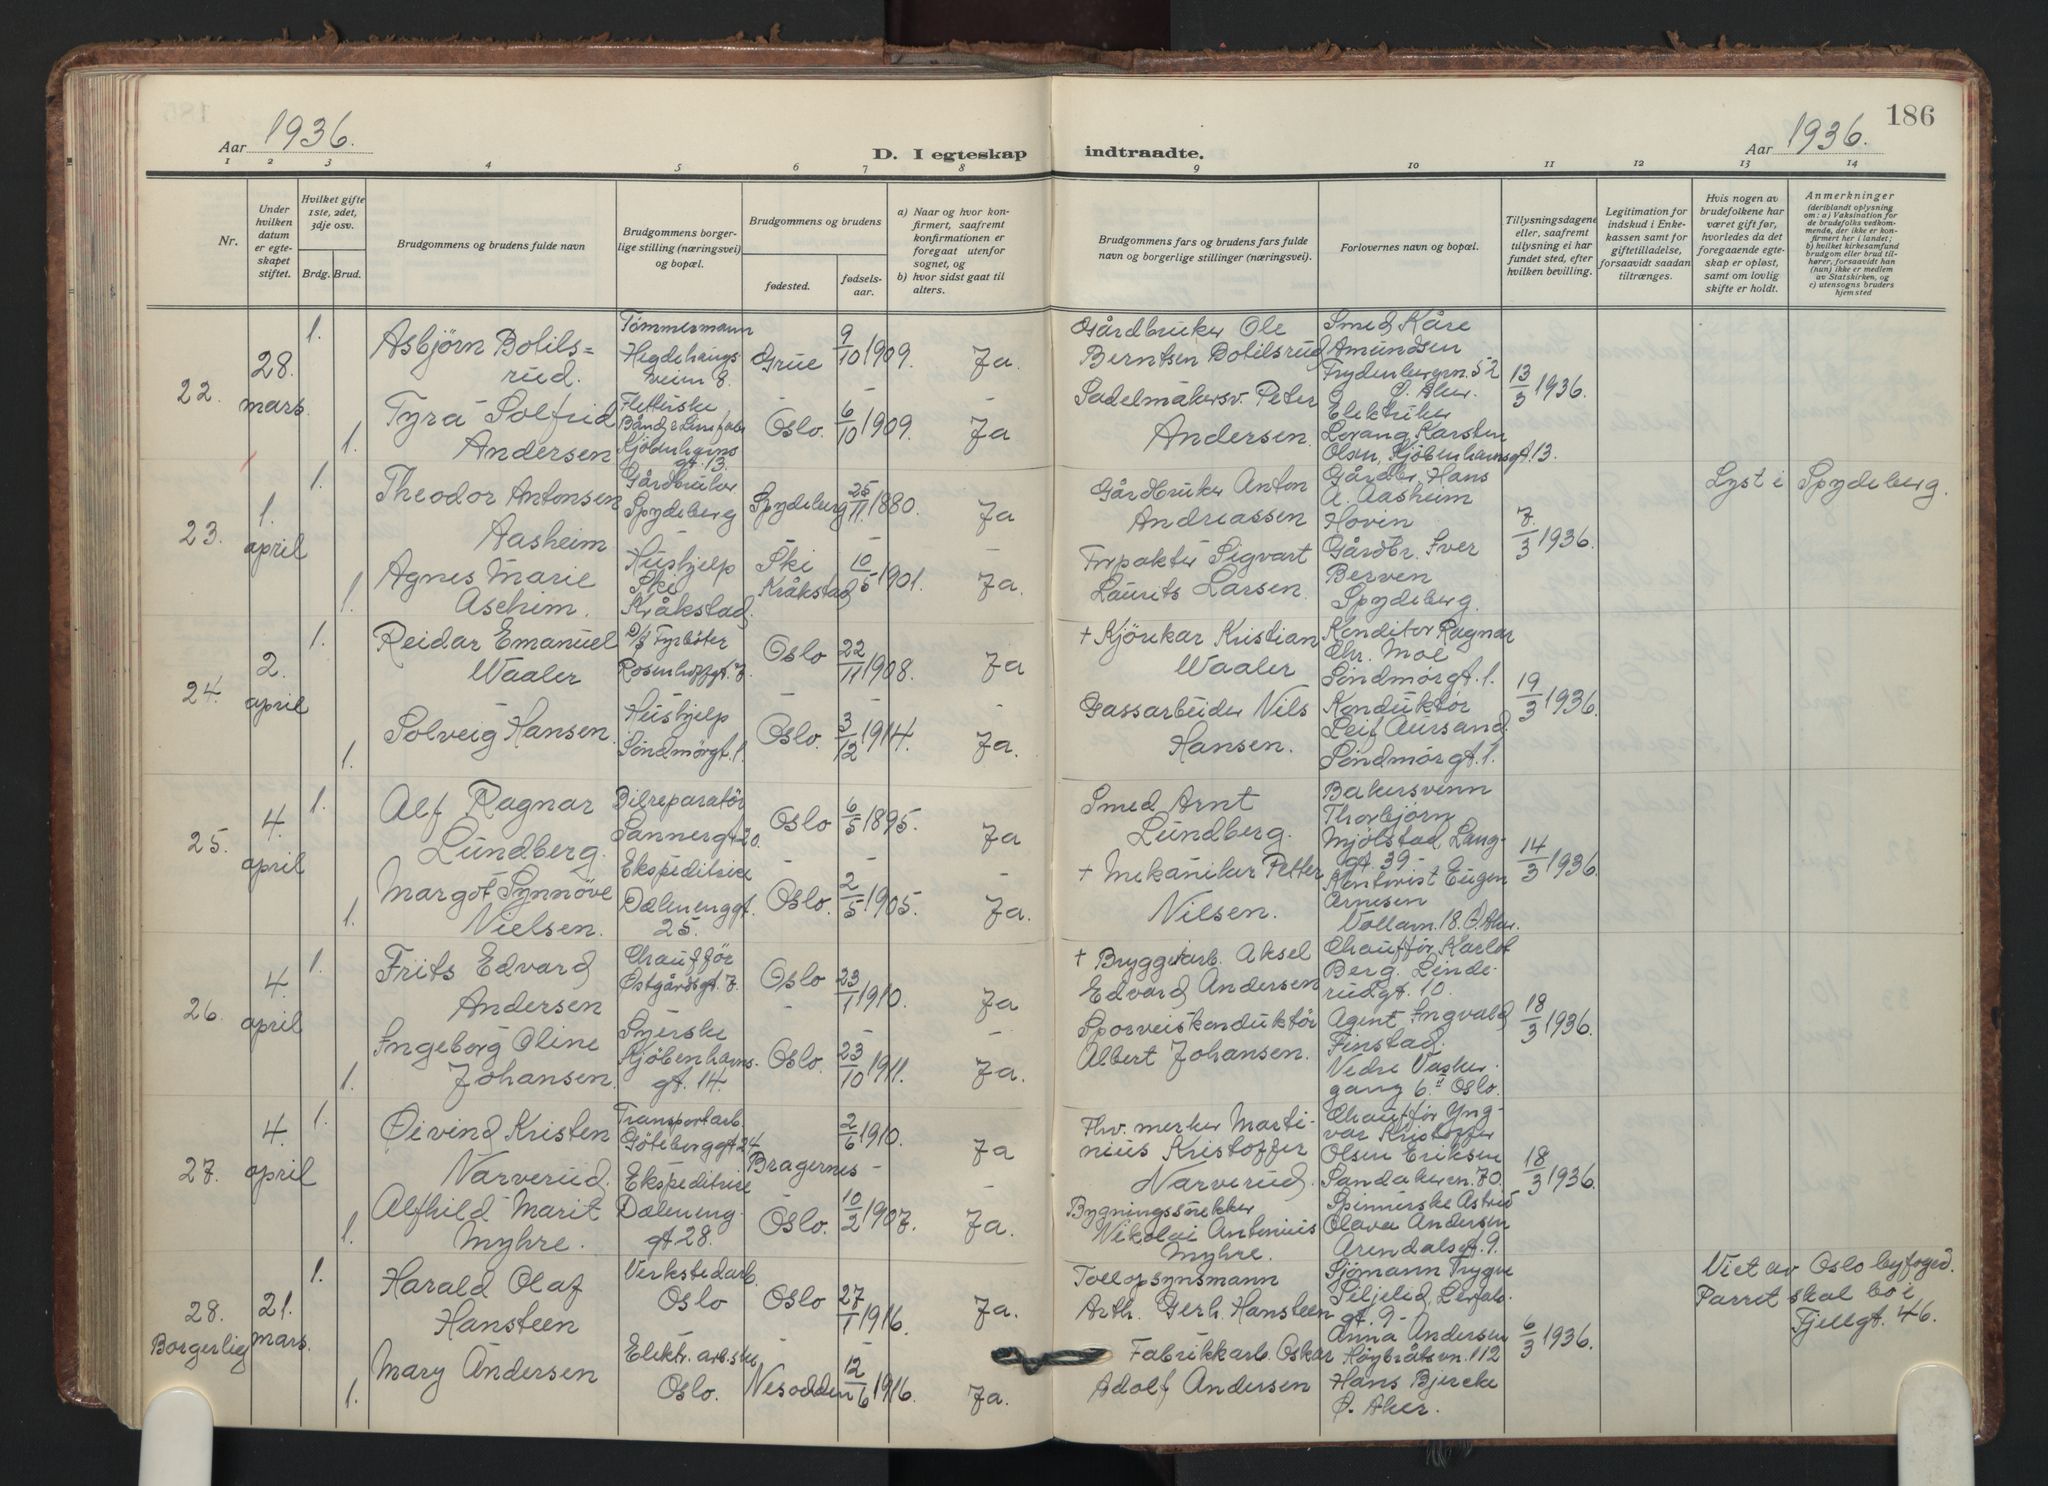 186
Aar 1936.
D. I egteskap indtraadte.
Aar 1936.
1 2 3 4 5 6 7 8 9 10 11 12 13 14
Nr.
Under hvilken datum er egteskapet stiftet.
Hvilket gifte 1ste, 2det, 3dje osv.
Brdg. Brud.
Brudgommens og brudens fulde navn
Brudgommens borgerlige stilling (næringsvei) og bopæl.
Brudgommens og brudens
fødested.
fødselsaar.
a) Naar og hvor konfirmert, saafremt konfirmationen er foregaat utenfor sognet, og
b) hvor sidst gaat til alters.
Brudgommens fars og brudens fars fulde navn og borgerlige stillinger (næringsvei).
Forlovernes navn og bopæl.
Tillysningsdagene eller, saafremt tillysning ei har fundet sted, efter hvilken bevilling.
Legitimation for indskud i Enkekassen samt for giftetilladelse, forsaavidt saadan tiltrænges.
Hvis nogen av brudefolkene har været gift før, hvorledes da det foregaaende egteskap er opløst, samt om lovlig skifte er holdt.
Anmerkninger
(deriblandt oplysning om: a) Vaksination for de brudefolks vedkommende, der ikke er konfirmert her i landet; b) hvilket kirkesamfund brudgom eller brud tilhører, forsaavidt han (hun) ikke er medlem av Statskirken, og c) utensogns bruders hjemsted
22. 28. mars
1. Asbjörn Botilsrud.
Tømmermann
Hegdehaugsveien 8.
Grue 9/10 1909. Ja.
Gårdbruker Ole
Berntsen Botilsrud
Smed Kåre
Amundsen
Frydenbergvn. 52
Ö. Aker.
13/3 1936.
1. Tyra Solfrid
Andersen
Fletterske
Kjöbenhavns
gt. 13.
Oslo. 6/10 1909. Ja
Sadelmakersv. Peter
Andersen.
Elektriker
Lorang Karsten
Olsen, Kjöbenhavnsgt. 13.
23. 1. april
1. Theodor Antonsen
Aasheim
Gårdbruker
Spydeberg
Spydeberg 25/11 1880. Ja
Gårdbruker Anton
Andreassen
Gårdbr. Hans
A. Aasheim
Hovin
7/3 1936.
Lyst i Spydeberg.
1. Agnes Marie
Ascheim.
Hushjelp
Ski
Kråkstad.
Ski
Kråkstad 10/5 1901. Ja.
Forpakter Sigvart
Laurits Larsen.
Gårdbr. Iver
Berven
Spydeberg.
24. 2. april
1. Reidar Emanuel
Waaler
D/s Fyrböter
Rosenhoffgt. 7.
Oslo 22/11 1908. Ja
+ Kjörekar Kristian
Waaler
Konditor Ragnar
Chr. Moe
Söndmörgt. 1.
19/3 1936.
1. Solveig Hansen.
Hushjelp
Söndmörgt. 1.
Oslo. 3/12 1914. Ja.
Gassarbeider Nils
Hansen.
Konduktör
Leif Aursand.
Söndmörgt. 1.
25. 4. april
1. Alf Ragnar
Lundberg.
Bilreparatör
Sannergt. 20.
Oslo 6/5 1895. Ja
Smed Arnt
Lundberg.
Bakersvenn
Thorbjörn
Mjölstad Langgt. 39 -
14/3 1936.
1. Margot Synnöve
Nielsen.
Ekspeditrise
Dælenenggt.
25.
Oslo. 2/5 1905. Ja.
+ Mekaniker Petter
Nilsen.
Kontorist Eugen
Arnesen
Vollavn. 18. Ö. Aker.
26. 4. april
1. Frits Edvard
Andersen
Chafför
Östgårdsgt. 7.
Oslo 23/1 1910. Ja
+ Bryggearb. Aksel
Edvard Andersen
Chafför Karlot
Berg. Linderudgt. 10.
18/3 1936.
1. Ingeborg Oline
Johansen.
Syerske
Kjöbenhavns.
gt. 14.
Oslo. 23/10 1911. Ja.
Sporveiskonduktör
Albert Johansen.
Agent Ingvald
Finstad.
Nedre Vasker
gang 6 II Oslo.
27. 4. april
1. Øivind Kristen
Narverud.
Transportarb.
Göteborggt. 24
Bragernes 2/6 1910. Ja
Martinius Kristoffer
Narverud.
Chafför Yngvar Kristoffer
Olsen Eriksen
Sandakervn. 70.
18/3 1936.
1. Alfhild Marit
Myhre.
Ekspeditrise
Dælenenggt. 28.
Oslo. 10/2 1907. Ja.
Bygningssnekker
Nikolai Antonius
Myhre.
Spinnerske Astrid
Olava Andersen
Arendalsgt. 9.
28. Borgerlig 21. mars.
1. Harald Olaf
Hansteen
Verkstedarb.
Oslo
Oslo 27/1 1916. Ja.
Tollopsynsmann
Arth. Gerh. Hansteen
Sjömann Trygve
Siljelid,
gt. 9 -
6/3 1936.
Viet av Oslo byfoged.
Parret skal bo i
Fjellgt. 46.
1. Mary Andersen
Elektr. arb.ske
Oslo.
Nesodden 12/6 1916. Ja.
Fabrikkarb. Oskar
Adolf Andersen
Anna Andersen
Höybråtvn. 112
Hans Bjercke
Ö. Aker.